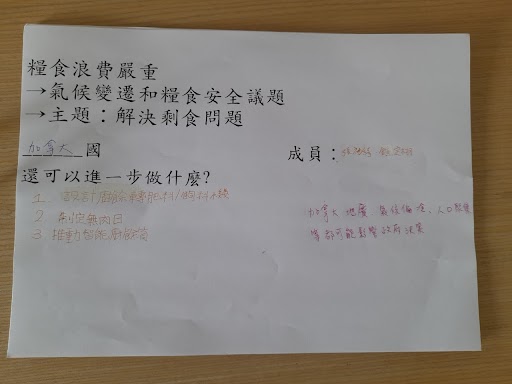 糧食浪費嚴重
→氣候變遷和糧食安全議題
→主題：解決剩食問題
加拿大 國
成員：
還可以進一步做什麼?
1. 設計廚餘轉肥料/飼料桶
2. 制定無肉日
3. 推動智能廚餘桶
加拿大 地廣、氣候偏冷、人口聚集
等都可能影響政府決策